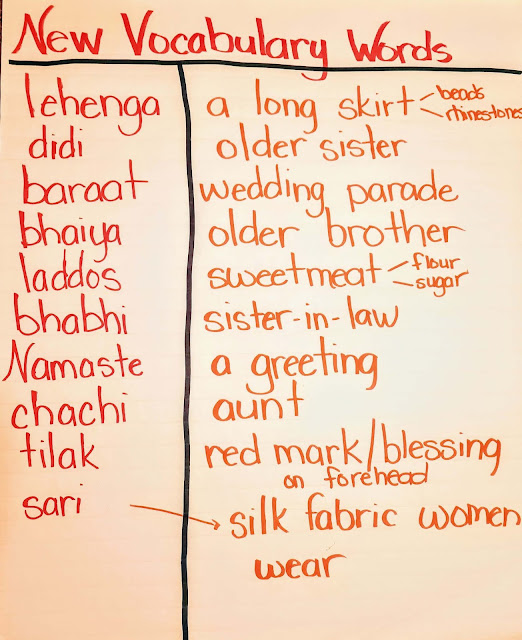 New Vocabulary Words
lehenga a long skirt beads
rhinestones
didi older sister
baraat wedding parade
bhaiya older brother
laddos sweetmeat flour
sugar
bhabhi sister-in-law
Namaste a greeting
chachi aunt
tilak red mark/blessing
on forehead
sari silk fabric women
wear